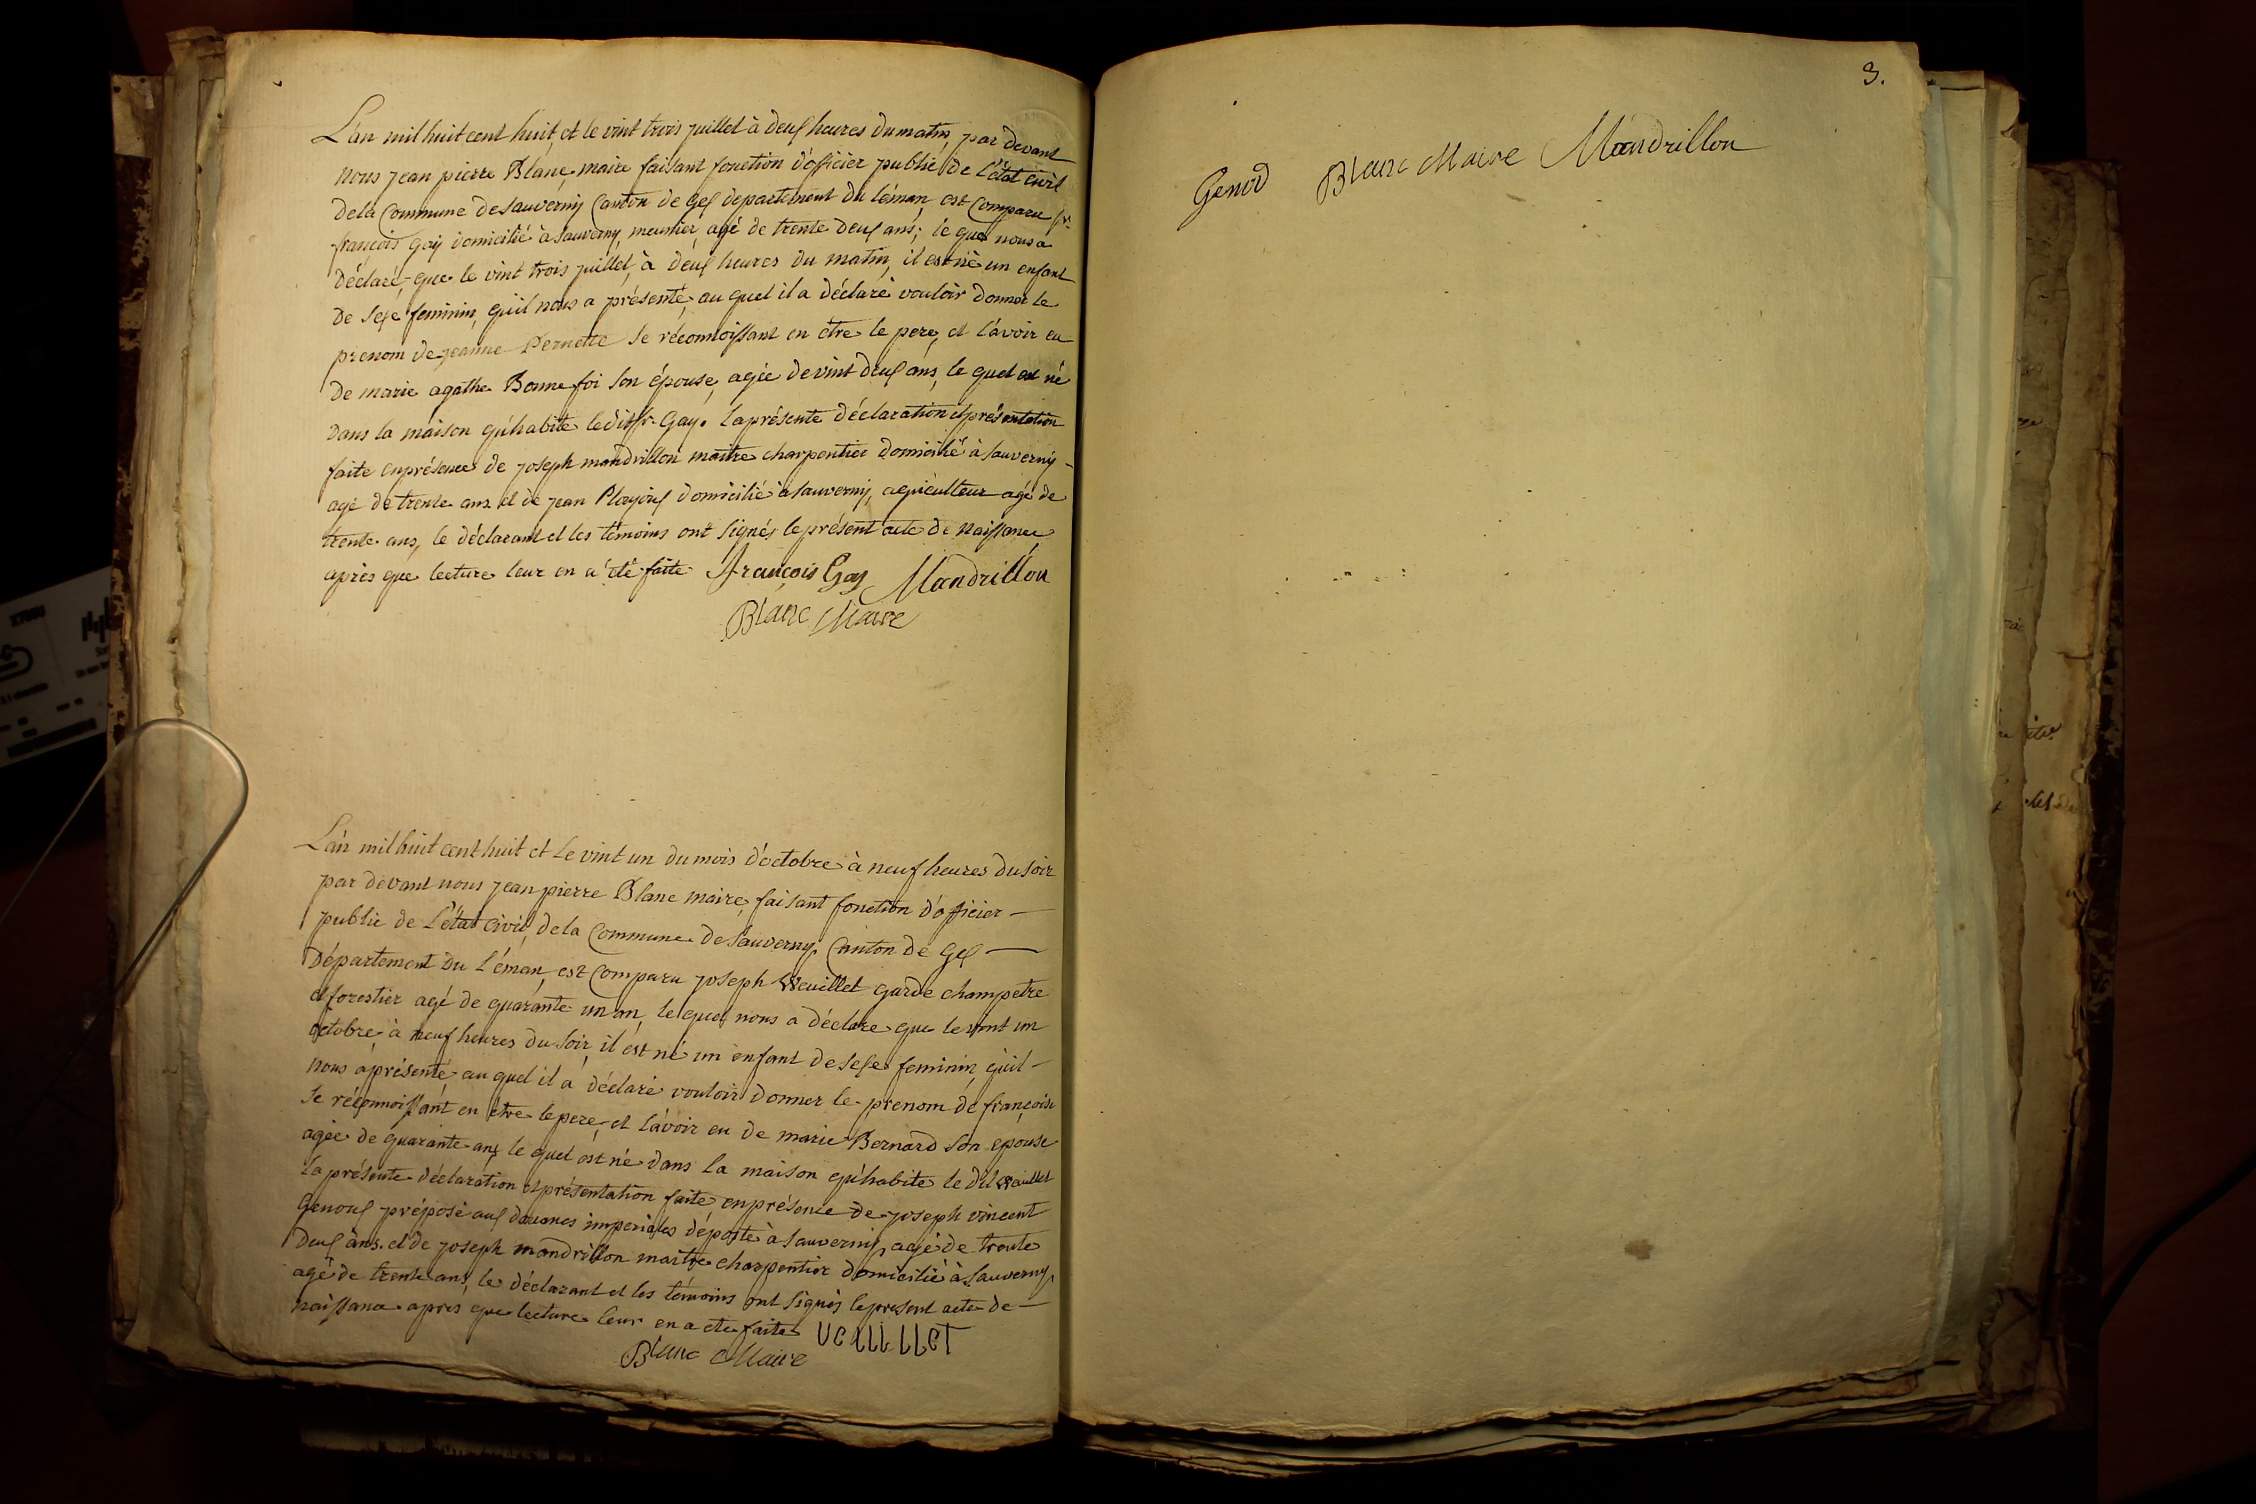 L'an mil huit cent huit, et le vint trois juillet à deux heures du matin, par devant
nous jean pierre Blanc, maire faisant fonction d'officier public de l'état civil
de la Commune de Sauverny Canton de Gex departement du léman, est Comparu sr.
françois Gay domicilié à Sauverny, meunier, agé de trente deux ans; le quel nous a
déclaré, que le vint trois juillet, à deux heures du matin, il est né un enfant
de sexe feminin, qu'il nous a présenté, au quel il a déclaré vouloir donner le
prenom de jeanne Pernette se réconnoissant en être le pere, et l'avoir eu
de marie agathe Bonnefoi son épouse, agée de vint deux ans, le quel est né
dans la maison qu'habite le dit sr. Gay. la présente déclaration et présentation
faite en présence de joseph mandrillon maitre charpentier domicilié à Sauverny
agé de trente ans et de jean domicilié à Sauverny, agriculteur agé de
trente ans, le déclarant et les témoins ont signés le présent acte de naissance
après que lecture leur en a été faite françois Gay Mandrillon
Blanc Maire
L'an mil huit cent huit et le vint un du mois d'octobre à neuf heures du soir
par devant nous jean pierre Blanc maire, faisant fonction d'officier
public de l'état civil, de la Commune de Sauverny Canton de Gex
Département du Léman, est Comparu joseph Veuillet garde champetre
et forestier agé de quarante un an, le quel nous a déclaré que le vint un
octobre, à neuf heures du soir, il est né un enfant de sexe feminin, qu'il
nous a présenté, au quel il a déclaré vouloir donner le prenom de françoise
se réconnoissant en être le pere, et l'avoir eu de marie Bernard son epouse
agée de quarante ans le quel est né dans la maison qu'habite le dit Veuillet
la présente déclaration et présentation faite en présence de joseph vincent
Genoux préposé aux douanes imperiales déposté à Sauverny, agé de trente
deux ans. et de joseph mandrillon maitre charpentier domicilié à Sauverny,
agé de trente ans, le déclarant et les témoins ont signés le present acte de
naissance apres que lecture leur en a ete faite VEUILLET
Blanc Maire
3.
Genod Blanc Maire Mandrillon